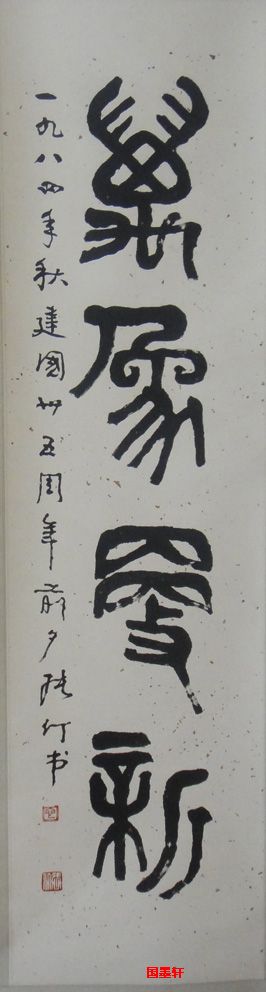 萬象更新
一九八四年秋建國卅五周年前夕张仃书
国墨轩